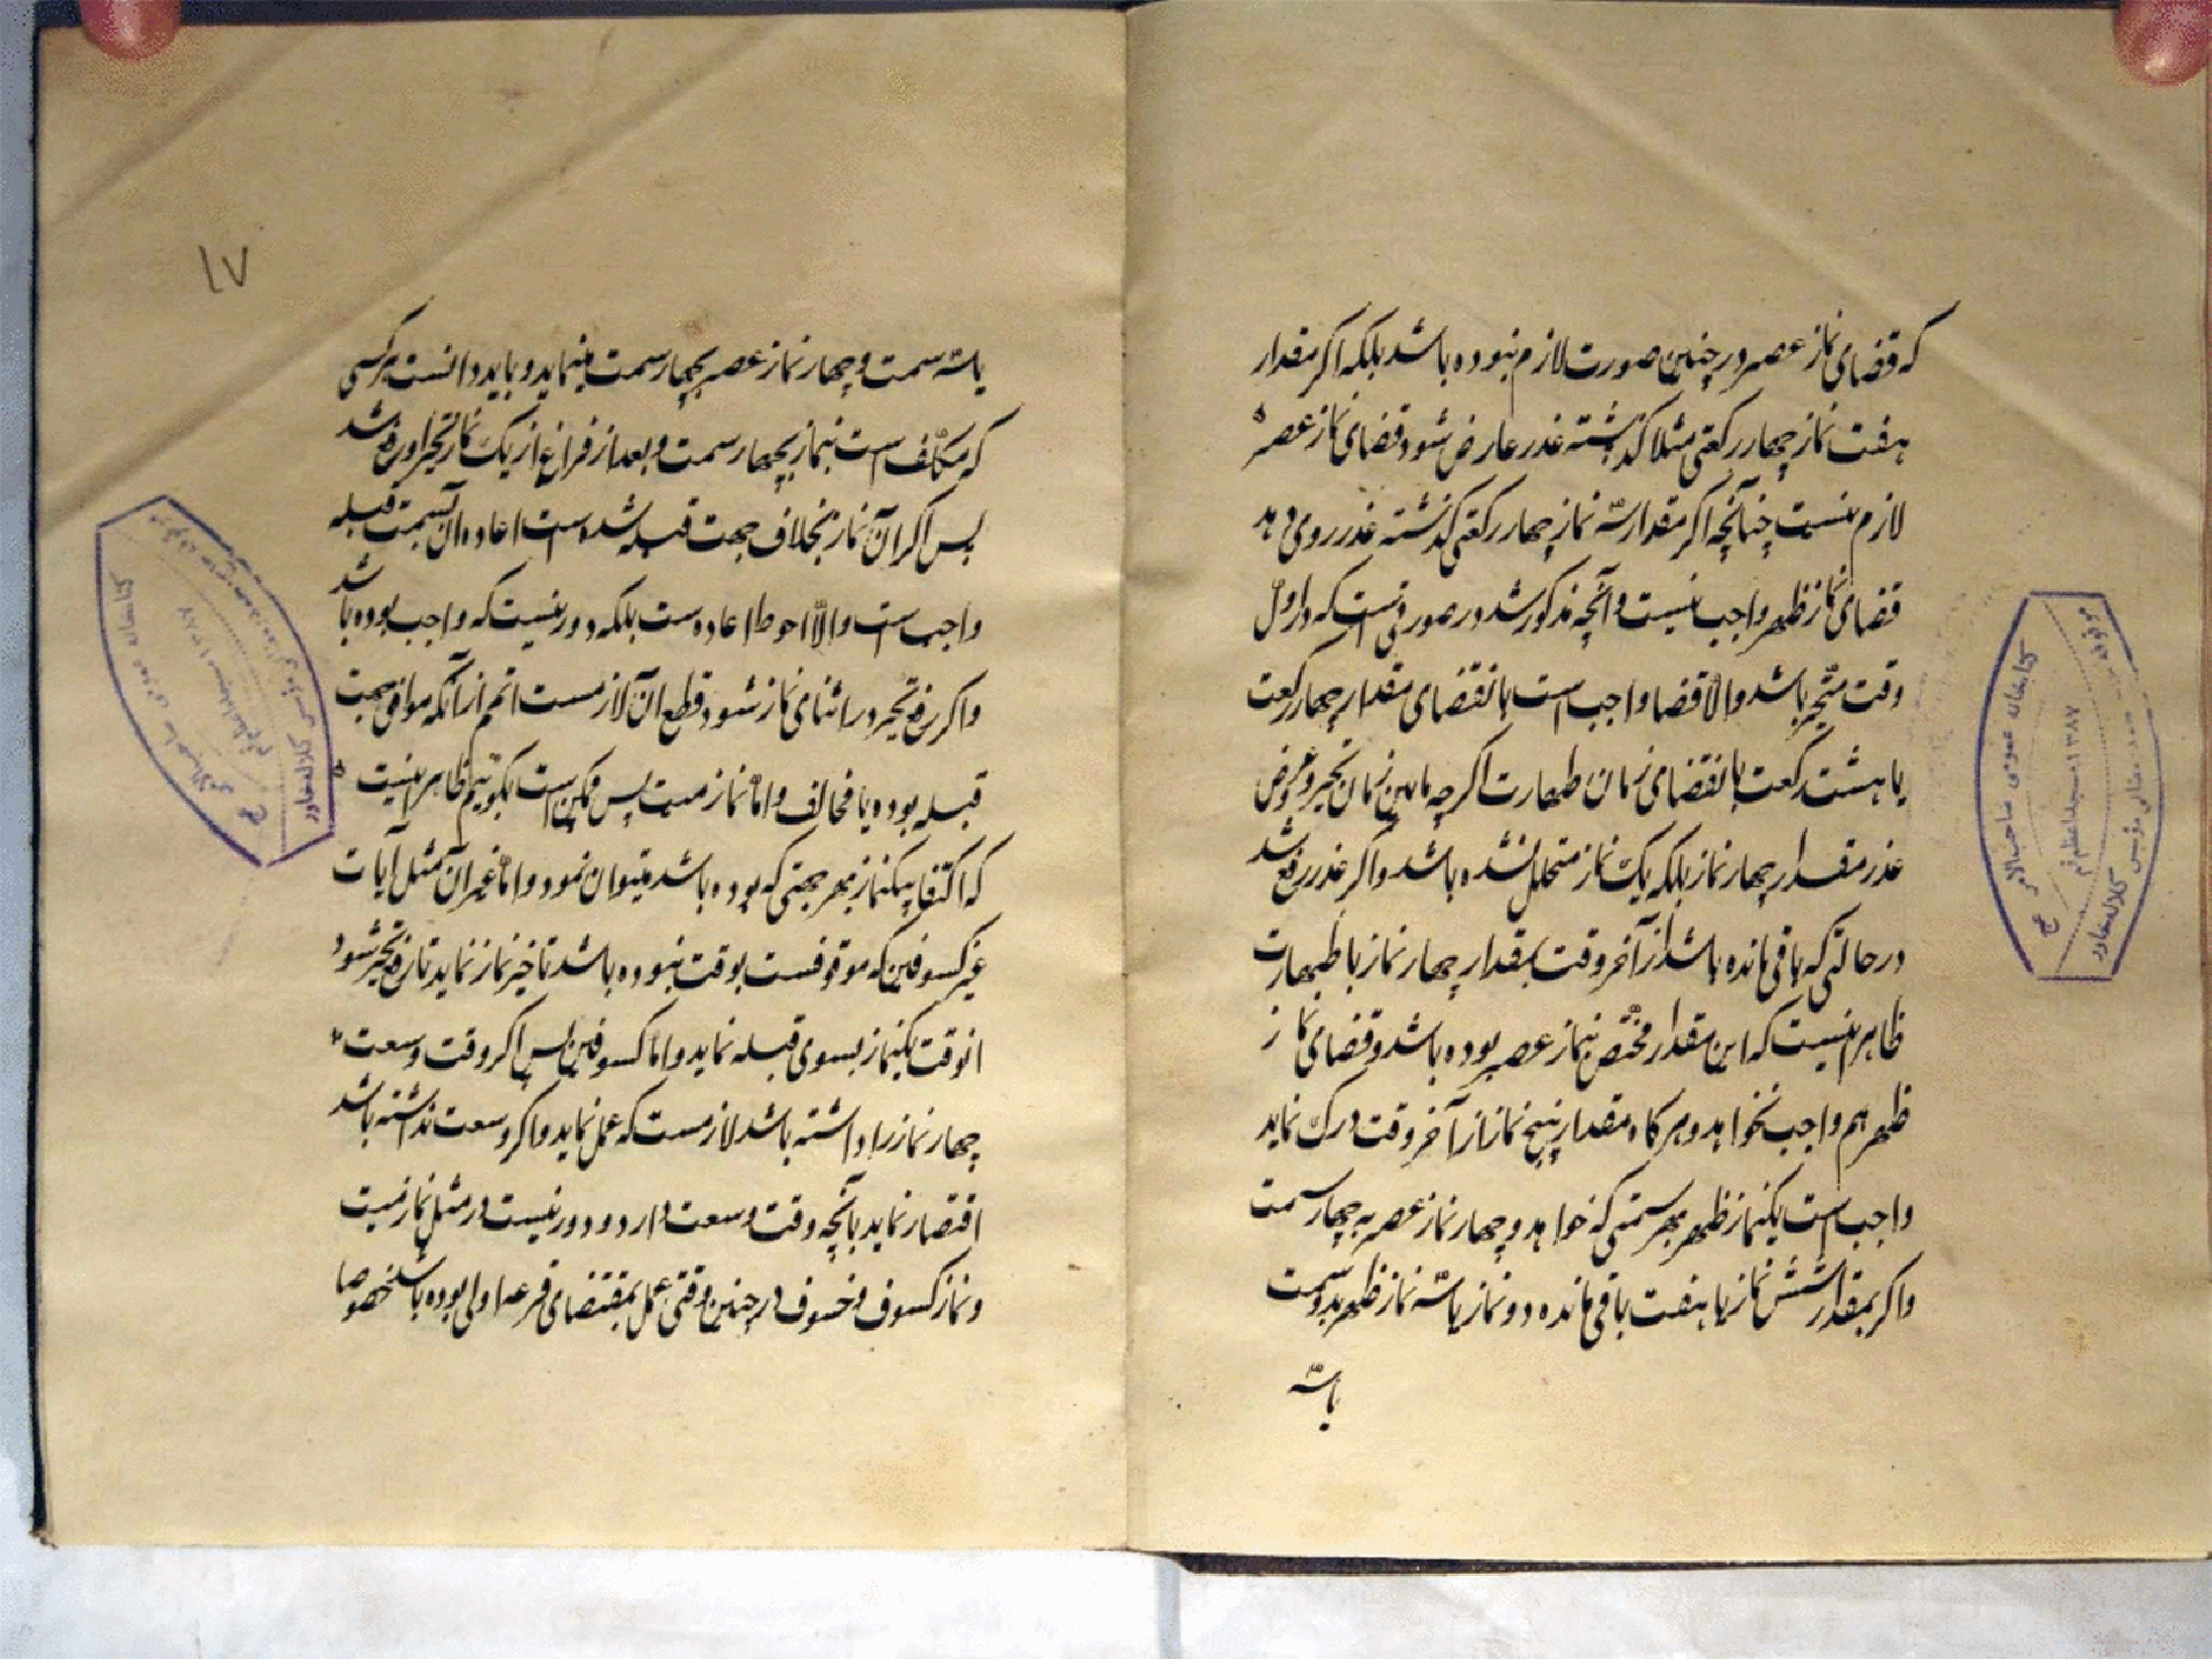 که قضای نماز عصر در چنین صورت لازم نبوده باشد بلکه اکر مقدار
هفت نماز چهار رکعتی مثلا کذشته عذر عارض شود قضای نماز عصر
لازم نیست چنانچه اکر مقدار سه نماز چهار رکعتی کذشته عذر روی دهد
قضای نماز ظهر واجب نیست و آنچه مذکور شد در صورتی است که در اول
وقت متحیر باشد والا قضا واجب است بانقضای مقدار چهار رکعت
یا هشت رکعت بانقضای زمان طهارت اکرچه مابین زمان تحیر و عروض
عذر مقدار چهار نماز بلکه یک نماز متخلل نشده باشد و اکر عذر رفع شد
در حالتی که باقی مانده باشد از آخر وقت بمقدار چهار نماز با طهارت
ظاهر نیست که این مقدار مختص بنماز عصر بوده باشد و قضای نماز
ظهر هم واجب نخواهد و هرکاه مقدار پنج نماز از آخر وقت درک نماید
واجب است یکنماز ظهر بهر سمتی که خواهد و چهار نماز عصر به چهار سمت
و اکر بمقدار شش نماز یا هفت باقی مانده دو نماز یا سه نماز ظهر بدو سمت
یا سه
۱۷
یا سه سمت و چهار نماز عصر بچهار سمت مینماید و باید دانست هر کسی
که مکلف است بنماز بچهار سمت و بعد از فراغ از یک نماز تحیر او رفع شد
پس اکر آن نماز بخلاف جهت قبله شده است اعاده ان بسمت قبله
واجب است والا احوط اعاده است بلکه دور نیست که واجب بوده باشد
و اکر رفع تحیر در اثنای نماز شود قطع ان لازمست اعم از آنکه موافق جهت
قبله بوده یا مخالف و اما نماز میت پس ممکن است بکوئیم ظاهر اینست
که اکتفا بیکنماز بهر جهتی که بوده باشد میتوان نمود و اما غیر ان مثل آیات
غیر کسوفین که موقوفست بوقت نبوده باشد تاخیر نماز نماید تا رفع تحیر شود
انوقت یکنماز بسوی قبله نماید و اما کسوفین پس اکر وقت وسعت
چهار نماز را داشته باشد لازمست که عمل نماید و اکر وسعت نداشته باشد
اقتصار نماید بآنچه وقت وسعت دارد و دور نیست در مثل نماز میت
و نماز کسوف و خسوف در چنین وقتی عمل بمقتضای قرعه اولی بوده باشد خصوصا
کتابخانه عمومی صاحب الامر عج
۱۳۸۷ مسجد اعظم قم
کلاله خاور